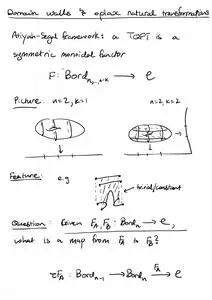 Domain walls & oplax natural transformations
Atiyah-Segal framework: a TQFT is a
symmetric monoidal functor
F: Bord_{n,…,n-k} → C
Picture: n=2, k=1 n=2, k=2
Feature: e.g
trivial/constant
Question: Given F_A, F_B: Bord_n → C,
what is a map from F_A to F_B?
τF_A: Bord_{n-1} → Bord_n →^{F_A} C